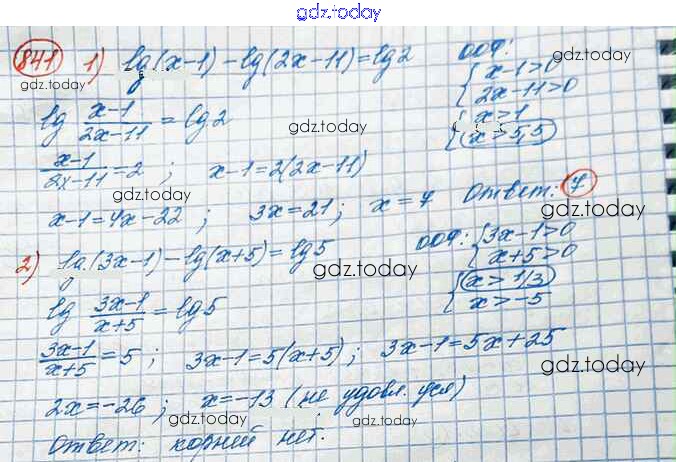 gdz.today
841 1) lg(x-1) - lg(2x-11) = lg2
ООФ:
{ x-1>0
2x-11>0
gdz.today
gdz.today
lg (x-1)/(2x-11) = lg2
gdz.today
{ x>1
x>5,5
(x-1)/(2x-11) = 2 ; x-1=2(2x-11)
gdz.today
x-1=4x-22 ; 3x=21 ; x=7 Ответ: 7
gdz.today
2) lg(3x-1) - lg(x+5) = lg5
ООФ: { 3x-1>0
x+5>0
gdz.today
gdz.today
lg (3x-1)/(x+5) = lg5
{ x>1/3
x>-5
(3x-1)/(x+5) = 5 ; 3x-1=5(x+5) ; 3x-1=5x+25
gdz.today
2x=-26 ; x=-13 (не удовл. усл)
gdz.today
gdz.today
Ответ: корней нет.